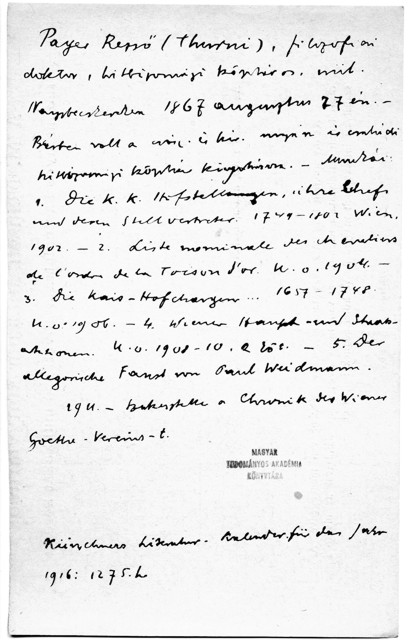 Payer Rezső (Thurni), filozofiai
doktor, hitbizományi könyvtáros, szül.
Nagybecskereken 1867 augusztus 27 én. –
Bécsben volt a és kir. és családi
hitbizományi könyvtár – Munkái:
1. Die K. K. Hofstellen, ihre Chefs
und deren Stellvertreter. 1749–1802 Wien,
1902. – 2. Liste nominale des chevaliers
de l'ordre de la Toison d'or. U. o. 1904. –
3. Die Kais-Hofchargen ... 1657–1748.
U. o. 1906. – 4. Wiener Haupt- und Staats-
aktionen. U. o. 1908–10. 2 köt. – 5. Der
allegorische Faust von Paul Weidmann.
1911. – Szerkesztette a Chronik des Wiener
Goethe-Vereins-t.
MAGYAR
TUDOMÁNYOS AKADÉMIA
KÖNYVTÁRA
Kürschners Literatur-Kalender für das Jahr
1916: 1275. h